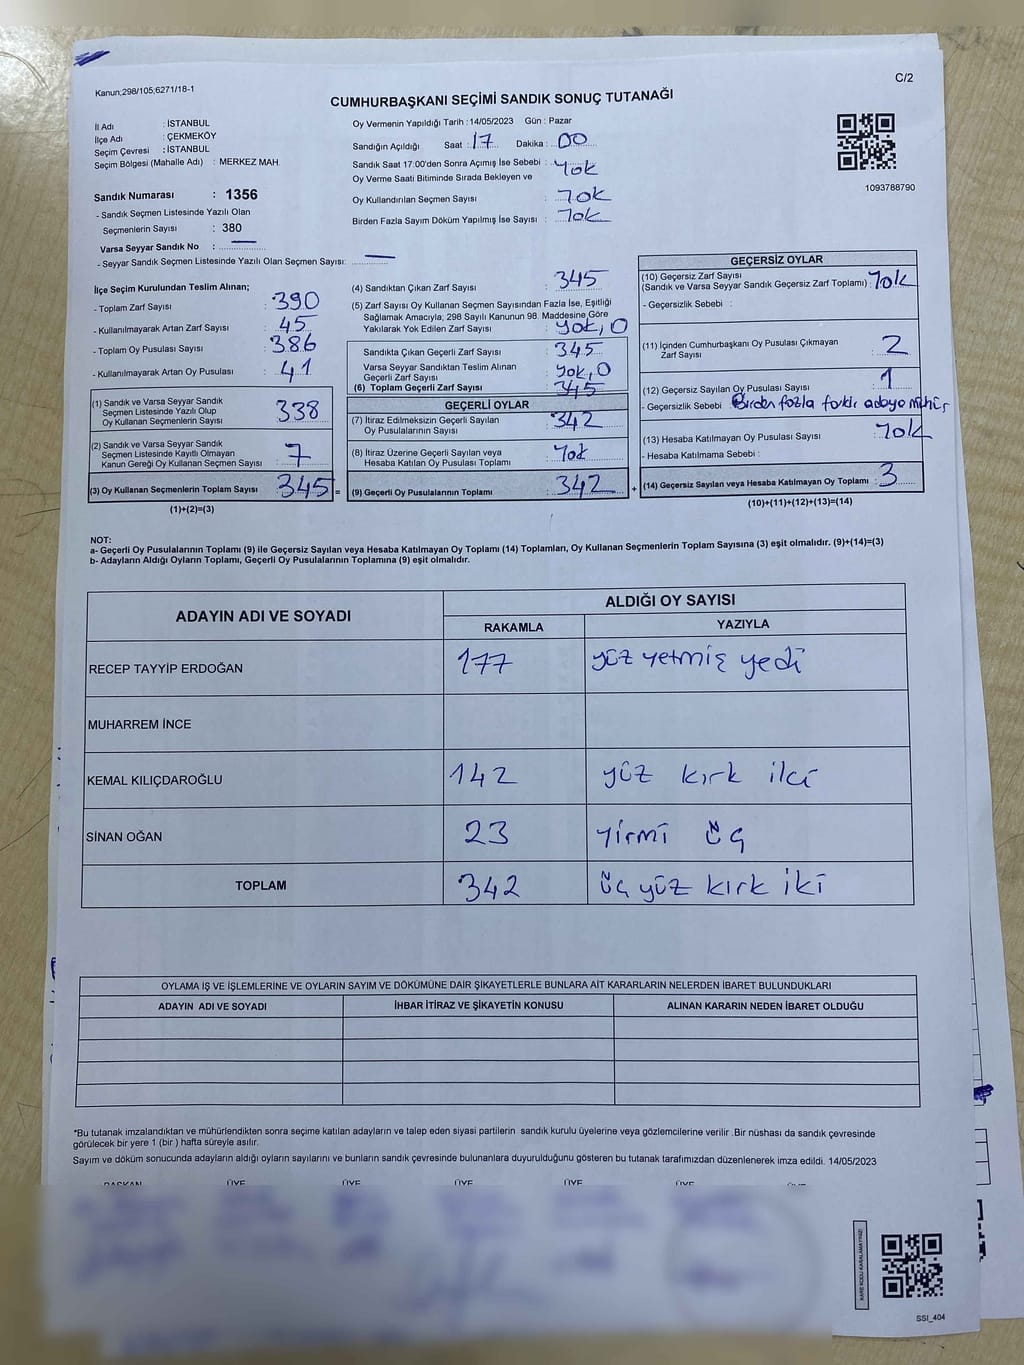 Kanun;298/105;6271/18-1
C/2
CUMHURBAŞKANI SEÇİMİ SANDIK SONUÇ TUTANAĞI
İl Adı : İSTANBUL
İlçe Adı : ÇEKMEKÖY
Seçim Çevresi : İSTANBUL
Seçim Bölgesi (Mahalle Adı) : MERKEZ MAH.
Sandık Numarası : 1356
- Sandık Seçmen Listesinde Yazılı Olan
Seçmenlerin Sayısı : 380
Varsa Seyyar Sandık No :
- Seyyar Sandık Seçmen Listesinde Yazılı Olan Seçmen Sayısı:
Oy Vermenin Yapıldığı Tarih : 14/05/2023 Gün : Pazar
Sandığın Açıldığı Saat : 17 Dakika : 00
Sandık Saat 17.00'den Sonra Açımış İse Sebebi : Yok
Oy Verme Saati Bitiminde Sırada Bekleyen ve
Oy Kullandırılan Seçmen Sayısı : Yok
Birden Fazla Sayım Döküm Yapılmış İse Sayısı : Yok
1093788790
İlçe Seçim Kurulundan Teslim Alınan;
- Toplam Zarf Sayısı : 390
- Kullanılmayarak Artan Zarf Sayısı : 45
- Toplam Oy Pusulası Sayısı : 386
- Kullanılmayarak Artan Oy Pusulası : 41
(1) Sandık ve Varsa Seyyar Sandık
Seçmen Listesinde Yazılı Olup
Oy Kullanan Seçmenlerin Sayısı : 338
(2) Sandık ve Varsa Seyyar Sandık
Seçmen Listesinde Kayıtlı Olmayan
Kanun Gereği Oy Kullanan Seçmen Sayısı : 7
(3) Oy Kullanan Seçmenlerin Toplam Sayısı : 345 =
(1)+(2)=(3)
(4) Sandıktan Çıkan Zarf Sayısı : 345
(5) Zarf Sayısı Oy Kullanan Seçmen Sayısından Fazla İse, Eşitliği
Sağlamak Amacıyla; 298 Sayılı Kanunun 98. Maddesine Göre
Yakılarak Yok Edilen Zarf Sayısı : yok, 0
Sandıkta Çıkan Geçerli Zarf Sayısı : 345
Varsa Seyyar Sandıktan Teslim Alınan
Geçerli Zarf Sayısı : yok, 0
(6) Toplam Geçerli Zarf Sayısı : 345
GEÇERLİ OYLAR
(7) İtiraz Edilmeksizin Geçerli Sayılan
Oy Pusulalarının Sayısı : 342
(8) İtiraz Üzerine Geçerli Sayılan veya
Hesaba Katılan Oy Pusulası Toplamı : Yok
(9) Geçerli Oy Pusulalarının Toplamı : 342 +
GEÇERSİZ OYLAR
(10) Geçersiz Zarf Sayısı
(Sandık ve Varsa Seyyar Sandık Geçersiz Zarf Toplamı) : Yok
- Geçersizlik Sebebi :
(11) İçinden Cumhurbaşkanı Oy Pusulası Çıkmayan
Zarf Sayısı : 2
(12) Geçersiz Sayılan Oy Pusulası Sayısı : 1
- Geçersizlik Sebebi Birden fazla farklı adaya mühür
(13) Hesaba Katılmayan Oy Pusulası Sayısı : Yok
- Hesaba Katılmama Sebebi :
(14) Geçersiz Sayılan veya Hesaba Katılmayan Oy Toplamı : 3
(10)+(11)+(12)+(13)=(14)
NOT:
a- Geçerli Oy Pusulalarının Toplamı (9) ile Geçersiz Sayılan veya Hesaba Katılmayan Oy Toplamı (14) Toplamları, Oy Kullanan Seçmenlerin Toplam Sayısına (3) eşit olmalıdır. (9)+(14)=(3)
b- Adayların Aldığı Oyların Toplamı, Geçerli Oy Pusulalarının Toplamına (9) eşit olmalıdır.
ADAYIN ADI VE SOYADI
ALDIĞI OY SAYISI
RAKAMLA YAZIYLA
RECEP TAYYİP ERDOĞAN 177 yüz yetmiş yedi
MUHARREM İNCE
KEMAL KILIÇDAROĞLU 142 yüz kırk iki
SİNAN OĞAN 23 yirmi üç
TOPLAM 342 üç yüz kırk iki
OYLAMA İŞ VE İŞLEMLERİNE VE OYLARIN SAYIM VE DÖKÜMÜNE DAİR ŞİKAYETLERLE BUNLARA AİT KARARLARIN NELERDEN İBARET BULUNDUKLARI
ADAYIN ADI VE SOYADI İHBAR İTİRAZ VE ŞİKAYETİN KONUSU ALINAN KARARIN NEDEN İBARET OLDUĞU
*Bu tutanak imzalandıktan ve mühürlendikten sonra seçime katılan adayların ve talep eden siyasi partilerin sandık kurulu üyelerine veya gözlemcilerine verilir .Bir nüshası da sandık çevresinde
görülecek bir yere 1 (bir ) hafta süreyle asılır.
Sayım ve döküm sonucunda adayların aldığı oyların sayılarını ve bunların sandık çevresinde bulunanlara duyurulduğunu gösteren bu tutanak tarafımızdan düzenlenerek imza edildi. 14/05/2023
BAŞKAN ÜYE ÜYE ÜYE ÜYE ÜYE ÜYE
KARE KODU KARALAMAYINIZ!
SSI_404